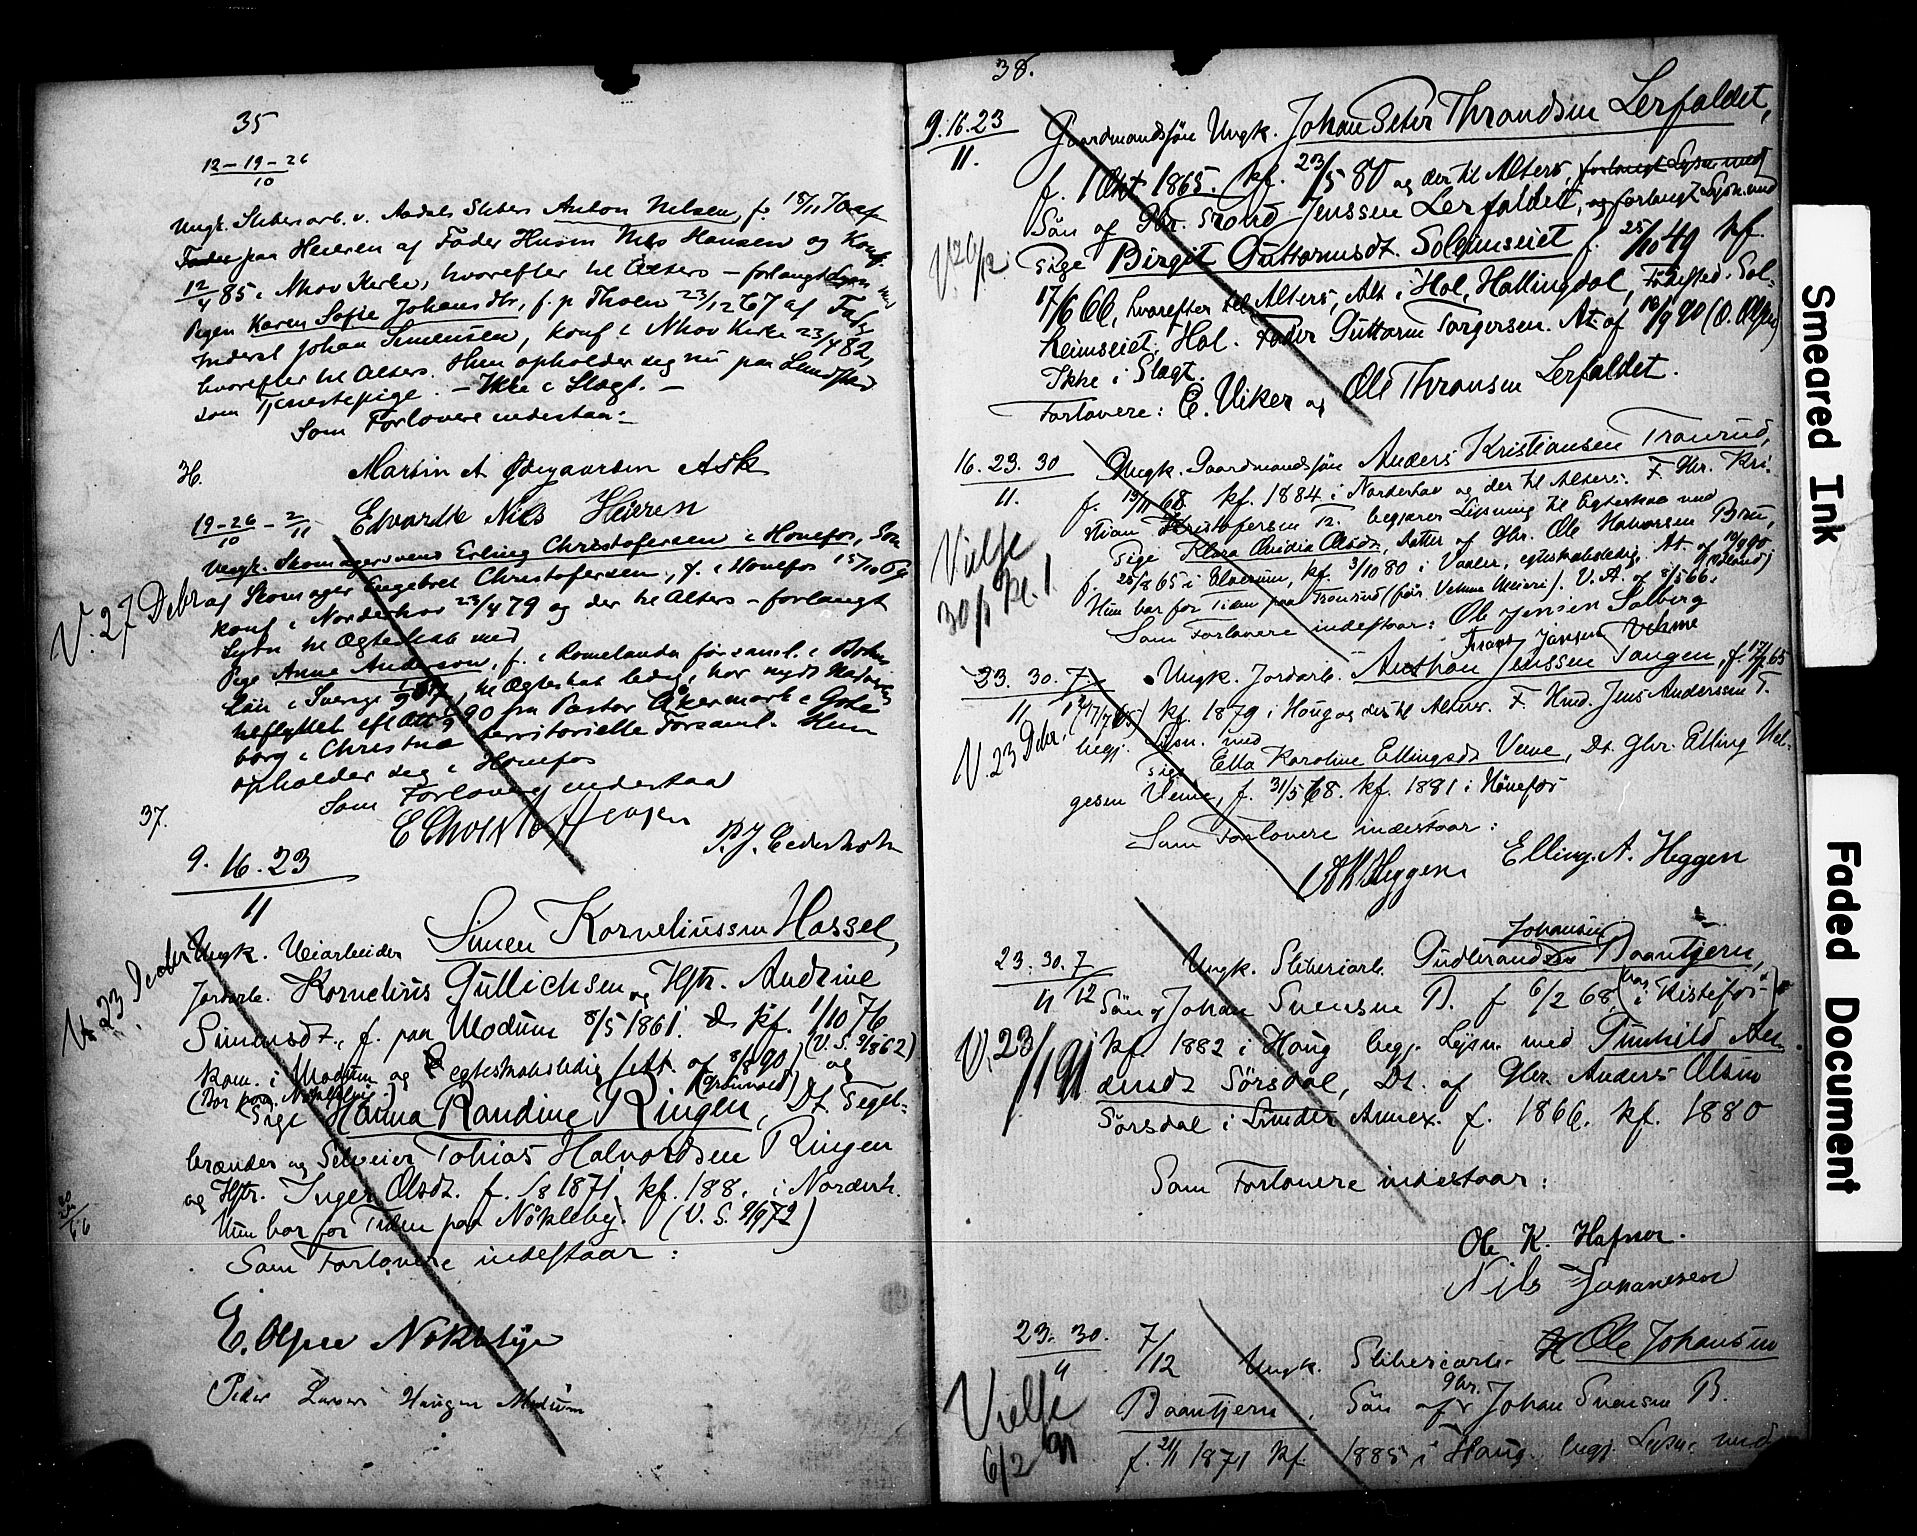 35
12-19-26
10
Ungk. Sliberiarb. v. Aadals Sliberi Anton Nilsen, f. 18/11
paa Heieren af Fader Husm Nils Hansen og Konf.
12/4 85 i Nkov Kirke, hvorefter til Alters – forlangt Lysn med
Pigen Karen Sofie Johansdtr, f. p Thoen 23/12 67 af Fader
Inderst Johan Simensen, konf i Nkov Kirke 23/4 82,
hvorefter til Alters. Hun opholder sig nu paa Lundstad
som Tjenestepige. – Ikke i Slægt. –
Som Forlovere indestaa:
Martin A Ødegaarden Ask
Edvardk Nils Heieren
36.
19-26 - 2
10 11
Ungk. Skomagersvend Erling Christofersen i Honefos, Søn
af Skomager Engebret Christofersen, f. i Honefos 15/10 69
V. 27 Debr
konf i Norderhov 23/4 79 og der til Alters – forlangt
Lysn til Ægteskab med
Pige Anna Anderson, f. i Romelanda församl. i Bohus
Län i Sverige 1/9 67, til Ægteskab ledig, har nydt Nadveren
tilflyttet efl Att 9/9 90 fra Pastor Åkermark i Gote
borg i Christnæ territorielle Forsaml. Hun
opholder sig i Honefos
Som Forlovere indestaa
P. J. Cederholm
37.
9. 16. 23
11
V. 23 Decbr
Ungk. Veiarbeider Simen Korneliussen Hassel,
Jordarb. Kornelius Gullichsen og Hstr. Andrine
Simensdt., f. paa Modum 8/5 1861. kf. 1/10 76
Kom. i Modum og egteskabsledig (Att. af 8/8 90) (V. S. 9/1862) og
(Bor paa Nøkleby.) (Grønvold)
Pige Hanna Randine Ringen, Dt. Tegel-
brænder og Selveier Tobias Halvordsen Ringen
og Hstr. Inger Olsdt. f. 1871, kf. 188. i Norderh.
Hun bor for Tiden paa Nøkleby. (V. S. 9/9 72)
Som Forlovere indestaar:
E. Olsen Nøkleby
Peder Larsen Haugen Modum
38.
9. 16. 23
11.
V. 20/12
Gaardmandssøn Ungk. Johan Peter Throndsen Lerfaldet,
f. 1 Okt 1865. kf. 23/5 80 og der til Alters, forlangt Lysn. med
Søn af Gbr. Trond Jenssen Lerfaldet, og forlangt Lysn. med
Pige Birgit Guttormsdt. Solemseiet f. 25/10 49 kf.
17/6 66, hvorefter til Alters, Alt i Hol, Hallingdal, Fødested. Sol-
heimseiet, Hol. Fader Guttorm Torgersen. At. af 18/9 90 (O. Olsen)
Ikke i Slægt.
Forlovere: E. Viker og Ole Thronsen Lerfaldet.
16. 23. 30
11.
Vielse
30/1 kl. 1.
Ungk. Gaardmandssøn Anders Kristiansen Tronrud,
f. 19/11 68 kf. 1884 i Norderhov og der til Alters. F. Gbr. Kri-
stian Kristofersen T. begjærer Lysning til Egteskab med
Pige Klara Ovidia Olsdt, Datter af Gbr. Ole Halvorsen Bru,
f. 25/8 65 i Elverum, kf. 3/10 80 i Vaaler, egteskabsledig. At. af 19/9 90
Hun bor for Tiden paa Tronrud (før. Velum Meieri). V. A. af 8/5 66.
Som Forlovere indestaar: Ole Jensen Solberg
Frants Jansen Vehme
23. 30. 7.
11 12
V. 23 Debr.
Ungk. Jordarb. Anthon Jenssen Tangen, f. 17/7 65
(17/7 65) kf. 1879 i Houg og der til Alters. F. Hmd. Jens Anderssen T.
begj. Lysn. med
Pige Ella Karoline Ellingsdt Veme, Dt. Gbr. Elling Hel-
gesen Veme, f. 31/5 68. kf. 1881 i Hönefos
Som Forlovere indestaar:
Elling. A. Heggen
23. 30. 7
11 12
V. 23/1 91
Ungk. Sliberiarb. Gudbrand Johansen Baantjern,
Søn af Johan Svensen B. f 6/2 68 (paa i Kistefos-)
kf. 1882 i Houg begj. Lysn. med Gunhild An-
dersdt Sørsdal, Dt. af Gbr. Anders Olsen
Sørsdal i Lunder Annex. f. 1866. kf. 1880
Som Forlovere indestaar:
Ole K. Hafnor.
Nils Johanesen
23. 30. 7/12
11
Vielse
6/2 91
Ungk. Sliberiarb. Ole Johansen
Baantjern. Søn af Gbr. Johan Svensen B.
f. 21/1 1871 kf. 1885 i Houg. begj. Lysn. med
Smeared Ink
Faded Document